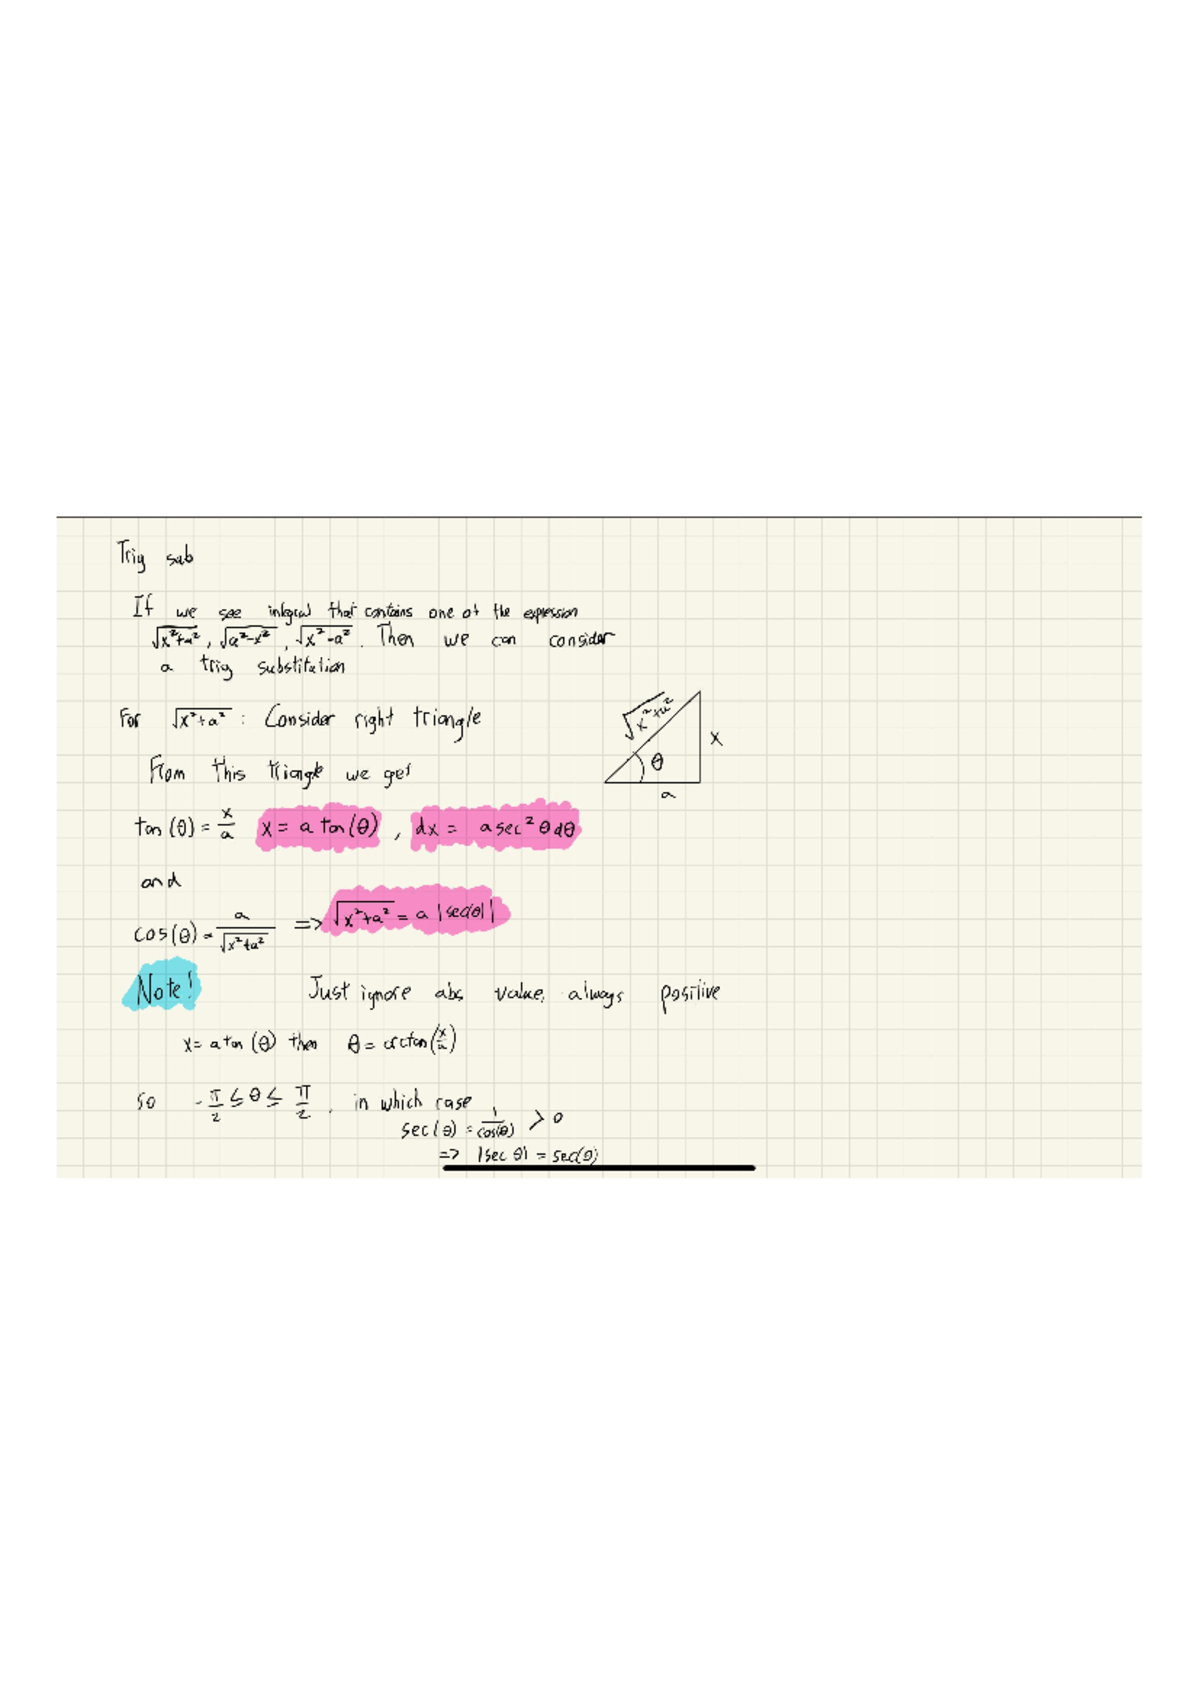 Trig sub
If we see integral that contains one of the expression
√x²+a², √a²-x², √x²-a². Then we can consider
a trig substitution
For √x²+a²: Consider right triangle
√x²+a²
x
θ
a
From this triangle we get
tan(θ) = x/a x = a tan(θ), dx = a sec²θdθ
and
cos(θ) = a/√x²+a² => √x²+a² = a |sec(θ)|
Note! Just ignore abs value, always positive
x = a tan(θ) then θ = arctan(x/a)
so -π/2 ≤ θ ≤ π/2, in which case
sec(θ) = 1/cos(θ) > 0
=> |sec θ| = sec(θ)